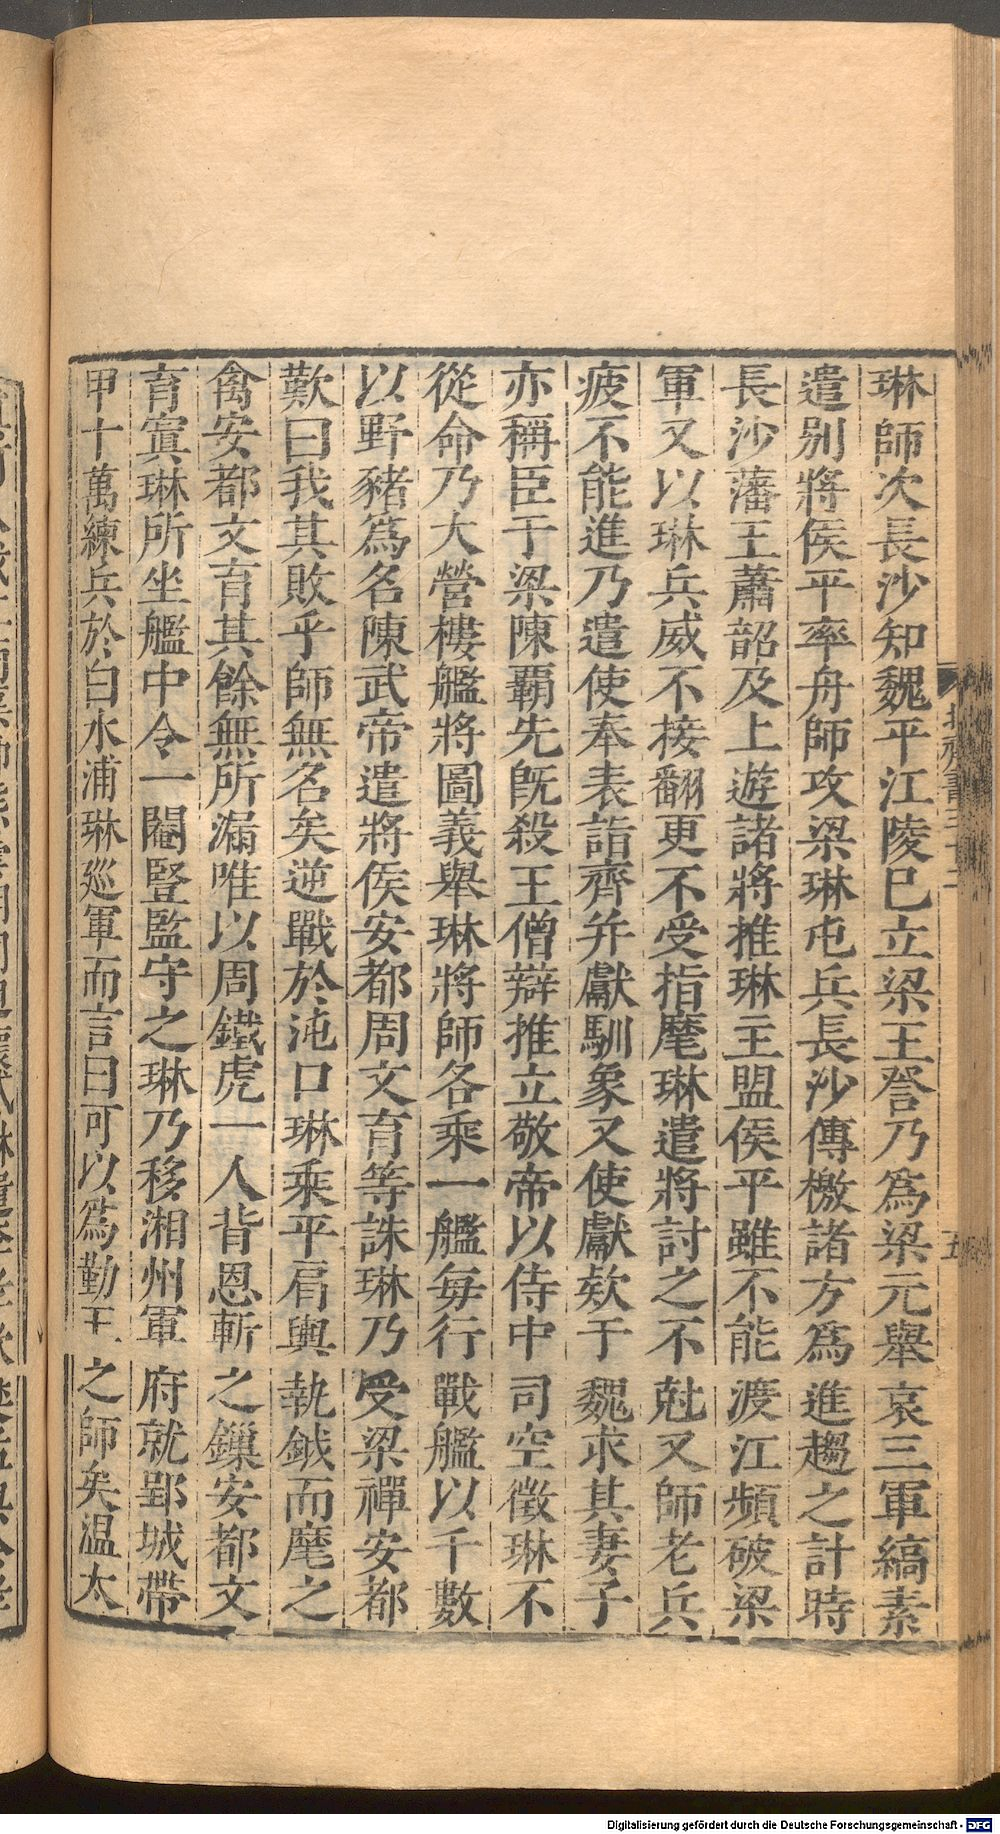 琳師次長沙知魏平江陵已立梁王詧乃爲梁元舉哀三軍縞素
遣别將侯平率舟師攻梁琳屯兵長沙傳檄諸方爲進趨之計時
長沙藩王蕭韶及上遊諸將推琳主盟侯平雖不能渡江頻破梁
軍又以琳兵威不接翻更不受指麾琳遣將討之不尅又師老兵
疲不能進乃遣使奉表詣齊并獻馴象又使獻欵于魏求其妻子
亦稱臣于梁陳霸先旣殺王僧辯推立敬帝以侍中司空徵琳不
從命乃大營樓艦將圖義舉琳將師各乘一艦每行戰艦以千數
以野豬爲名陳武帝遣將侯安都周文育等誅琳乃受梁禪安都
歎曰我其敗乎師無名矣逆戰於沌口琳乘平肩輿執鉞而麾之
禽安都文育其餘無所漏唯以周鐵虎一人背恩斬之鏁安都文
育寘琳所坐艦中令一閹豎監守之琳乃移湘州軍府就郢城帶
甲十萬練兵於白水浦琳巡軍而言曰可以爲勤王之師矣温太
五
Digitalisierung gefördert durch die Deutsche Forschungsgemeinschaft - DFG